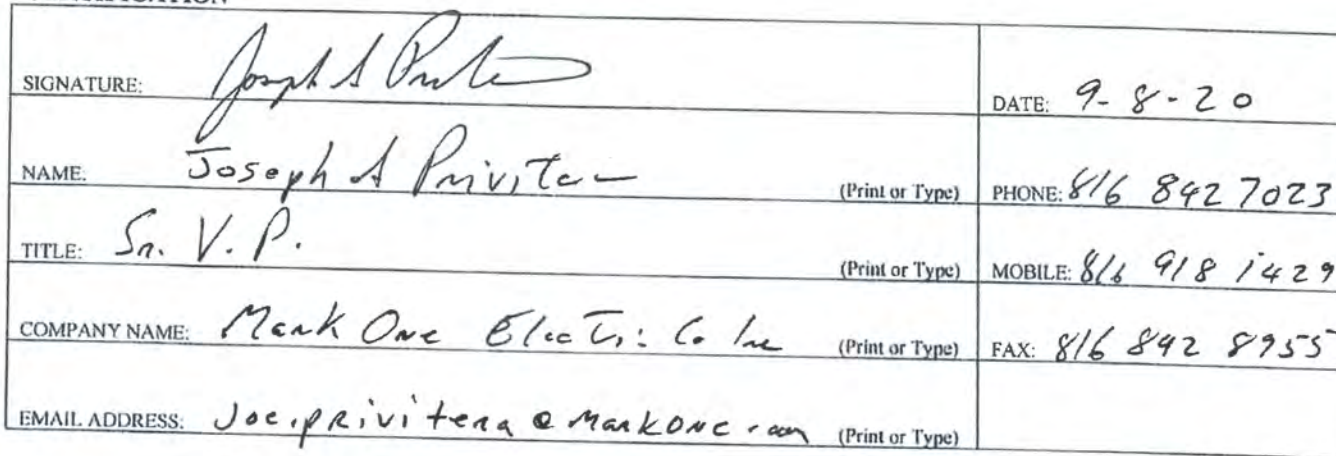 SIGNATURE: Joseph A Privitera
DATE: 9-8-20
NAME: Joseph A Privitera (Print or Type)
PHONE: 816 842 7023
TITLE: Sr. V. P. (Print or Type)
MOBILE: 816 918 1429
COMPANY NAME: Mark One Electric Co Inc (Print or Type)
FAX: 816 842 8955
EMAIL ADDRESS: Joe.privitera@markone.com (Print or Type)